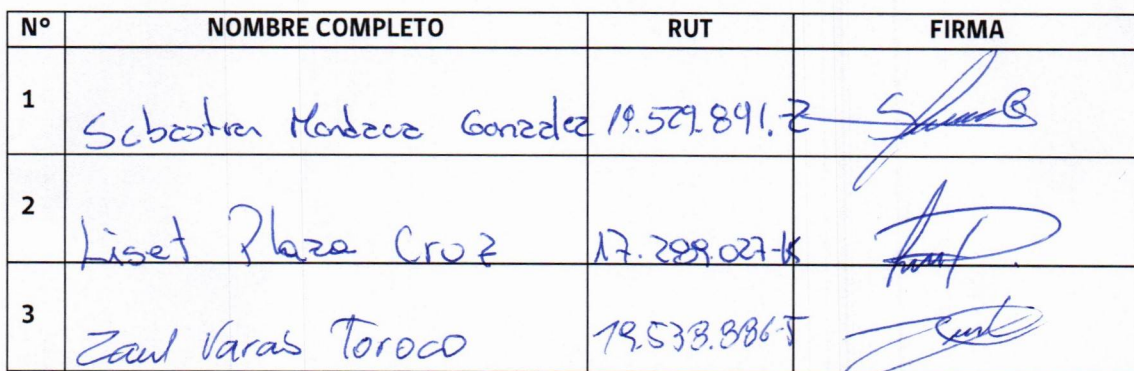 N° NOMBRE COMPLETO RUT FIRMA
1 Sebastian Mondaca Gonzalez 19.529.891-2
2 Liset Plaza Cruz 17.289.027-K
3 Zaul Varas Toroco